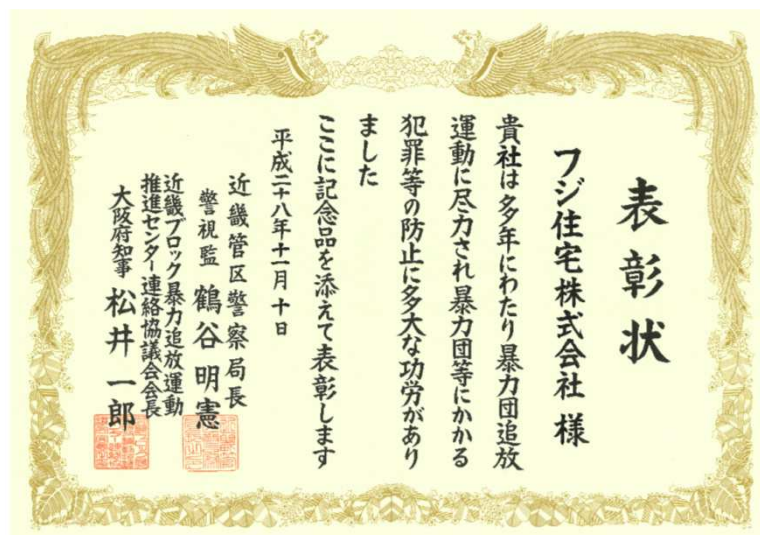 表彰状
フジ住宅株式会社 様
貴社は多年にわたり暴力団追放
運動に尽力され暴力団等にかかる
犯罪等の防止に多大な功労があり
ました
ここに記念品を添えて表彰します
平成二十八年十一月十日
近畿管区警察局長
警視監 鶴谷明憲
近畿ブロック暴力追放運動
推進センター連絡協議会会長
大阪府知事 松井一郎